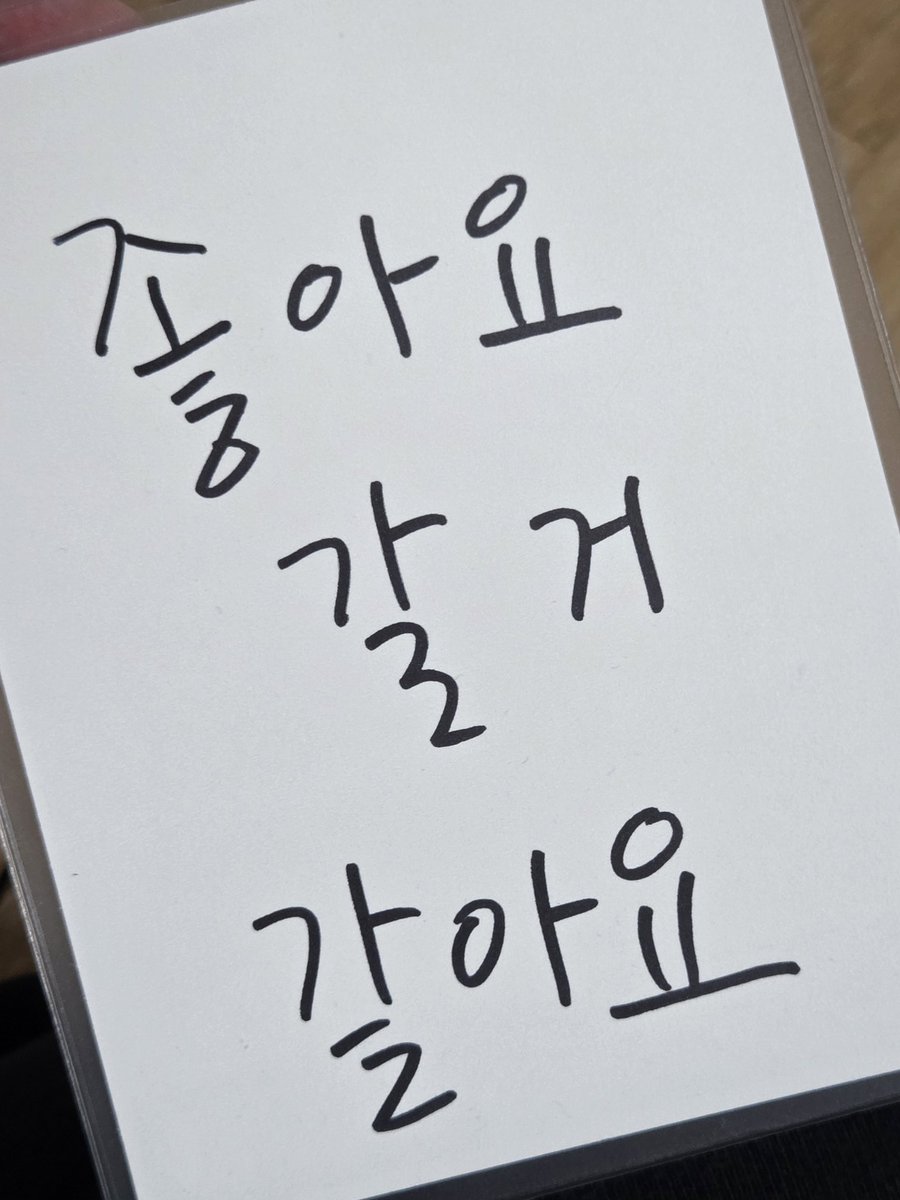 좋아요
갈 거
같아요